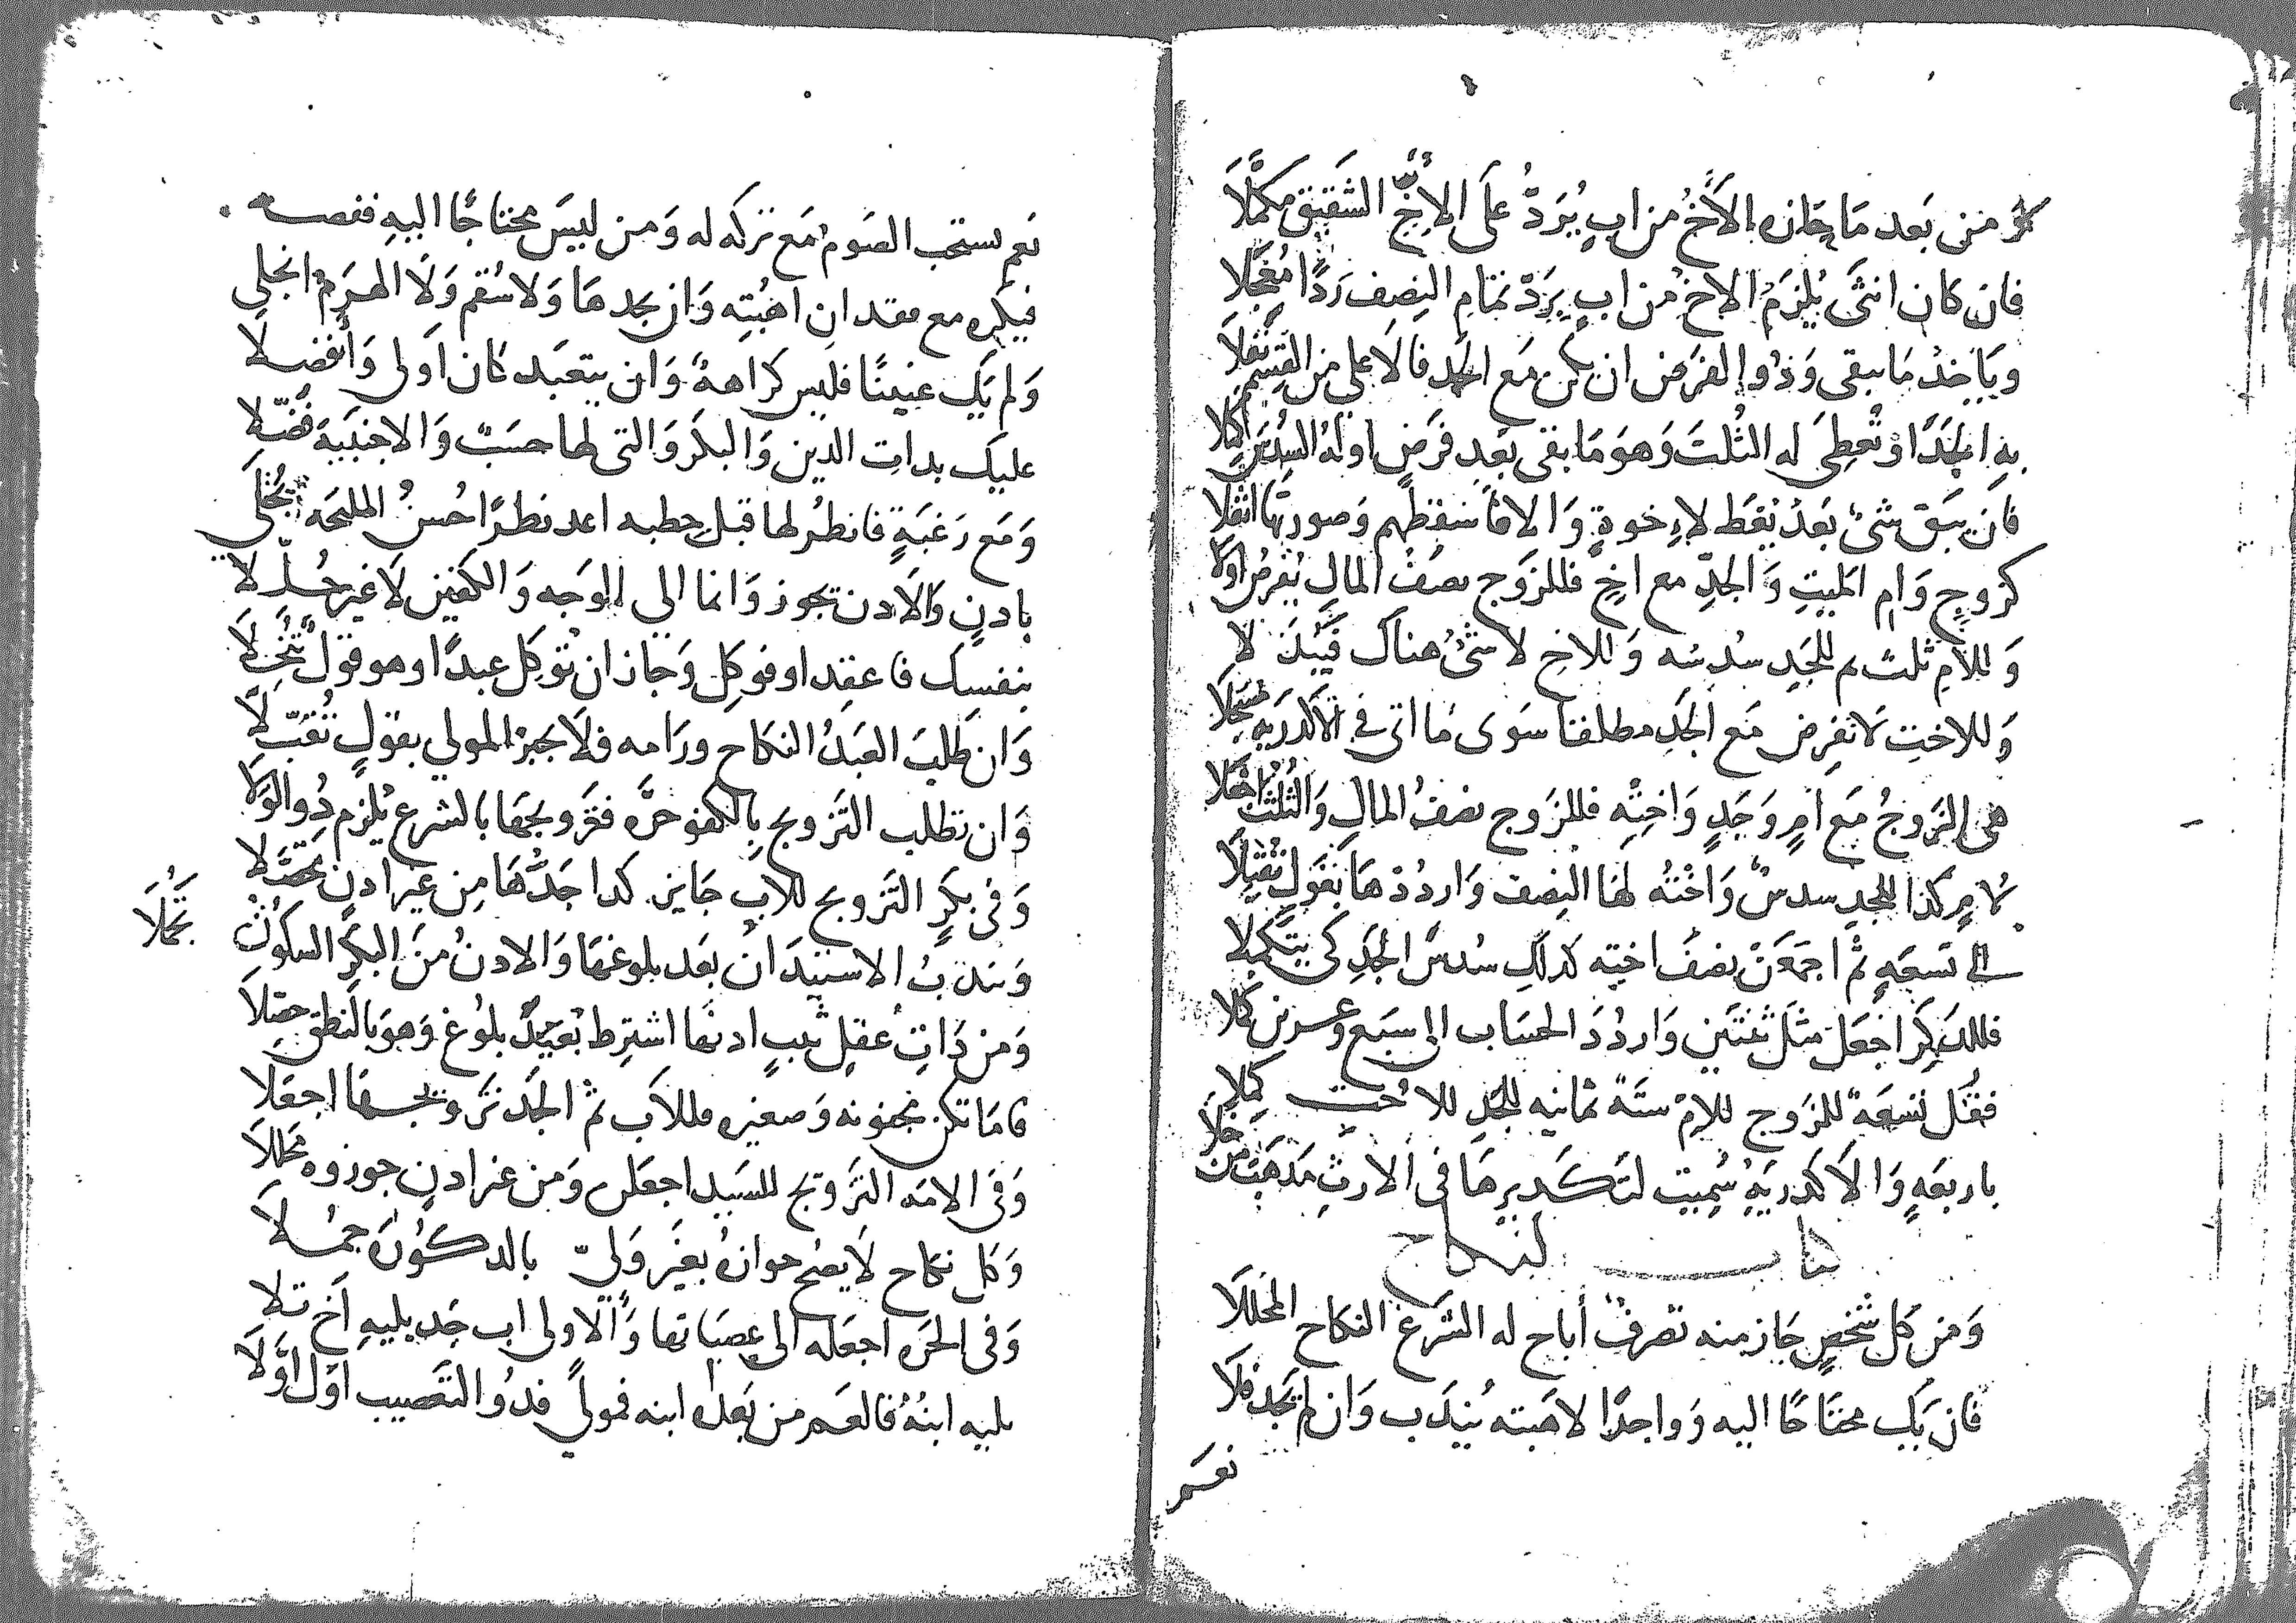 من بعد ما حازه الأَخُ من ابٍ يُرَدُّ على الأخِّ الشَقيق مكمَّلَا
فان كان انثَى يُلزَمُ الاخ من ابٍ بِرَدّ تمَامِ النِصف رَدًّا
ويَاخذ مَا يبقى وَذُو الفرض ان يكن مَع الجَد فالَاعلى من القِسم
بهِ الجَدّ او تُعطِى له الثُلثَ وَهوَ مَا بقى بَعد فرَضٍ اولهُ السُدسَ
فان يبَق شىءٌ بَعدُ يُعَط لاِخوةٍ وَالا فاَسقطهم وَصورتها انقلا
كزوجٍ وَام الميتِ وَالجدِّ مع اخٍ فللزَوج نصفُ المالِ يُفرضُ اولا
وَللامِ ثلث ثم للجَدِ سُدسُه وَللاخِ لا شىءٌ هناكَ
وَللاختِ لَا تفرِض مَع الجَدِ مطلقا سَوى مَا اتى في الاكدريه مسجلا
هى الزَوجُ مَع امٍ وَجَدٍ وَاختِهِ فللزَوج نصفُ المالِ وَالثُلثُ
لامٍ كذا للجدِ سدسٌ وَاختُه لهَا النِصف وَاردُدْ هَا بقَولٍ
الى تسعَهٍ ثم اجمَعَنْ نصفَ اختِه كذلك سُدسَ الجَدِ كى يتكملا
فللذَكِر اجعَل مثلَ ثنتَينِ وَاردُدَ الحسَاب الى سبَع وعشرين كلا
فقُل تسعَةٌ للزَوج للامِ ستَة ثمانيه للجَد للاخت كملا
باربعَهٍ وَالَاكدريَهُ سُمِيت لتَكديرِهَا فى الارثِ مَذهَبَ من خلا
كتاب النكاح
وَمن كل شخصٍ جَاز منه تصرفٌ أباح له الشَرعُ النكاح المحللَا
فان يَك محتَاجًا اليه وَواجدًا لاهَبته يُندَب وَان لم تجَد فلَا
نعم
نعم يستحَب الصَوم مَع تركه له وَمن ليسَ محتَاجًا اليهِ ففصله
فيكره مع فقدان اهبُتِه وَان يجدها وَلا سُقم وَلَا الهَرَمُ انجلى
وَلم يَك عنينًا فليس كراهةٌ وَان يتعَبَد كان اَولى وَأفضلا
عليك بذات الدين وَالبكر وَالتى لها حسَبٌ وَالاجنبَية فضّلا
وَمَع رَغبَةٍ فانظُر لها قبل خطبه اعد نظرًا حُسنُ المليحَه يُجتلَى
باذنٍ وَالَاذن تجوز وَانما الى الوَجه وَالكفين لَا غير حُلِّلا
بنفسِك فاعقِد او فوكِل وَجاز ان تُوكِل عبدًا وهو قول تنُخِّلَا
وَان طلبَ العَبدُ النكاح ورَامه فلَا يجبرُ المولى بقولٍ تُقبّلَا
وَان تطلب التَزويج بالكفو حرَّه فتَزويجهَا بالشرع يُلزِم ذُو الوَلَا
وَفى بكرٍ التَزويج للابِ جَايز كذا جَدُّهَا مِن غير اذنٍ تحصَّلا
وَيندَبُ الاستئذَانُ بعَد بلوغهَا وَالاذنُ منَ البكرِ السكوتُ تجُملَا
وَمن ذَاتِ عقلٍ ثيبٍ اذنها اشترِط بُعَيدَ بلوُغ وَهوَ بالنطق حصّلَا
فامَا تكن مجنونه وَصغيره فللَاب ثم الجَد تزويجها اجعَلا
وَفى الامَه التَزويج للسَيد اجعَلن وَمن غير اذنٍ جوزوه محللَا
وَكل نكاح لَا يصُح جوازهُ بغَير وَلىّ بالذكُورَه جمُلَا
وَفى الحَره اجعَله الى عصَبَاتها وَالَاولى اب جَد يليهِ اَخ تلا
يليه ابنُهُ فالعَم من بَعده ابنه فمولىً فذُو التعَصيب اوَل اوَّلَا